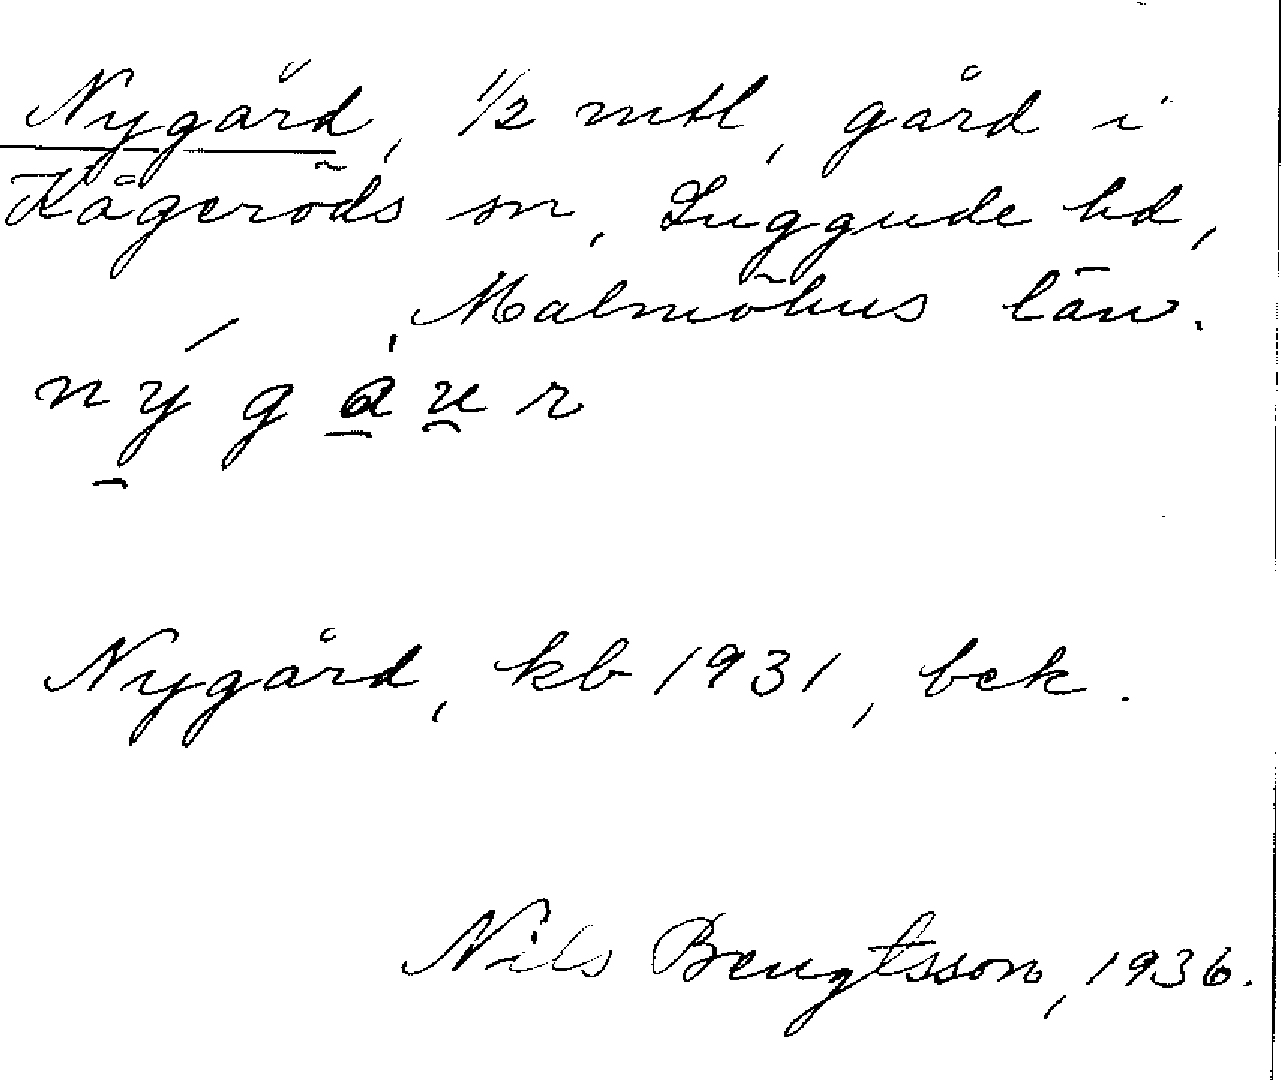 Nygård, 1/2 mtl, gård i
Kågeröds sn, Luggude hd,
Malmöhus län.
nýgau̯r
Nygård, kb 1931, bek.
Nils Bengtsson, 1936.